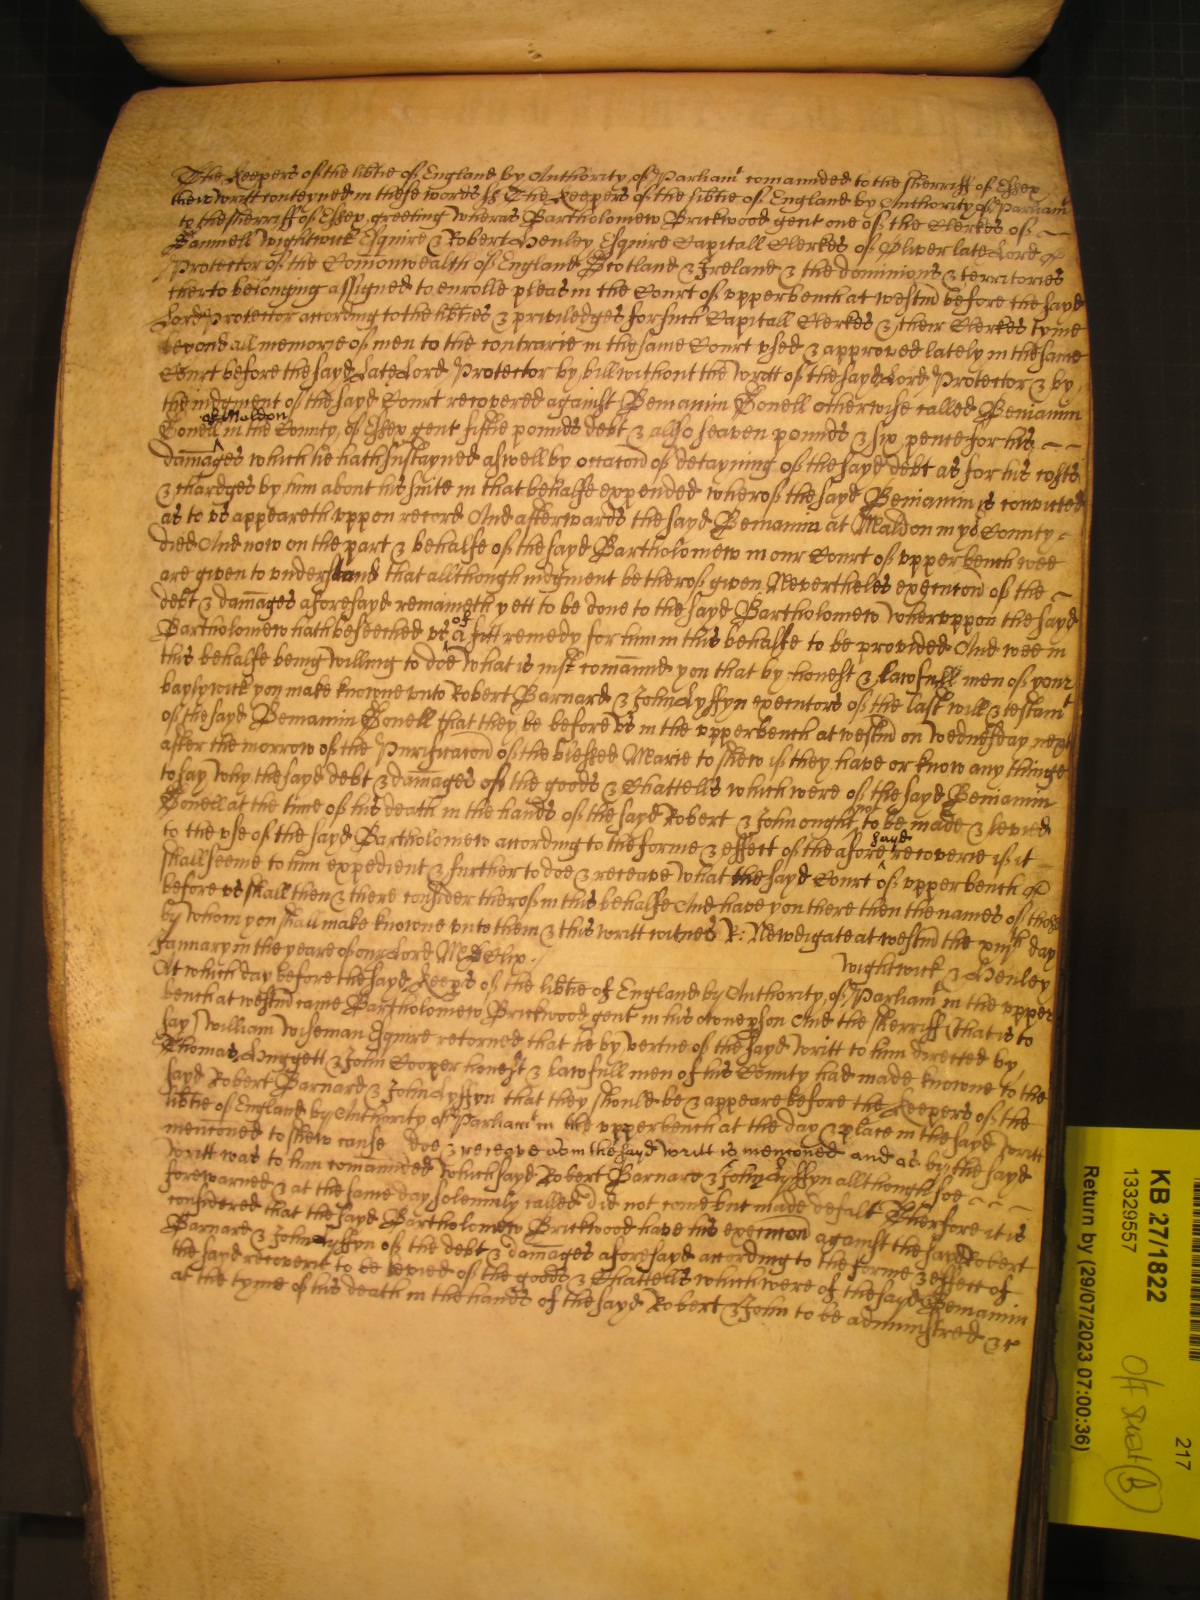 The Keepers of the lib̃tie of England by Authority of Parliam̃t com̃anded to the sherriff of Essex
their writt conteyned in these words ss The Keepers of the lib̃tie of England by Authority of Parliam̃t
to the sherriff of Essex greeting Wheras Bartholomew Brickwood gent one of the Clerkes of
Sammell Wightwick Esquire & Robert Henley Esquire Capitall Clerkes of Oliver late Lord
Protector of the Comonwealth of England Scotland & Ireland & the dominions & territories
therto belonging assigned to enrolle pleas in the Court of upper bench at westm̃ before the sayd
Lord Protector according to the lib̃ties & priviledges for such Capitall Clerkes & their Clerkes tyme
beyond all memorie of men to the contrarie in the same Court vsed & approved lately in the same
Court before the sayd Late Lord Protector by bill without the writt of the sayd Lord Protector & by
the iudgment of the sayd Court recovered against Beniamin Bonell otherwise called Beniamin
of Maldon
Bonell in the County of Essex gent fiftie pounds debt & also seaven pounds & six pence for his
dam̃ages which he hath sustayned aswell by occac̃on of detayning of the sayd debt as for his costs
& chardges by him about his suite in that behalfe expended wherof the sayd Beniamin is convicted
as to vs appeareth vppon record And afterwards the sayd Beniamin at Maldon in yor County
died And now on the part & behalfe of the sayd Bartholomew in our Court of vpper bench wee
are given to vnderstand that allthough iudgment be therof given Nevertheles execuc̃on of the
debt & dam̃ages aforesayd remaineth yett to be done to the sayd Bartholomew Wheruppon the sayd
of
Bartholomew hath beseeched vs a fitt remedy for him in this behalfe to be provided And wee in
this behalfe being willing to doe what is iust com̃aund you that by honest & lawfull men of your
baylywick you make knowne vnto Robert Barnard & John Lyffyn executors of the last will & testam̃t
of the sayd Beniamin Bonell that they be before vs in the vpper bench at westm̃ on Wednesday next
after the morrow of the Purificac̃on of the blessed Marie to shew if they have or know any thinge
to say why the sayd debt & dam̃ages of the goods & Chattells which were of the sayd Beniamin
not
Bonell at the time of his death in the hands of the sayd Robert & John ought to be made & levied
sayd
to the vse of the sayd Bartholomew according to the forme & effect of the afore recoverie if it
shall seeme to him expedient & further to doe & receave what the sayd Court of vpper bench
before vs shall then & there consider therof in this behalfe And have you there then the names of those
by whom you shall make knowne vnto them & this writt witnes R: Newdigate at westm̃ the day
January in the yeare of our Lord MDClix. Wightwick & Henley
At which day before the sayd Keep̃s of the lib̃tie of England by Authority of Parliam̃t in the vpper
bench at westm̃ came Bartholomew Brickwood gent in his owne p̃son And the sherriff (that is to
say) William Wiseman Esquire retorned that he by vertue of the sayd writt to him directed by
Thomas Huggett & John Cooper honest & lawfull men of his County had made knowne to the
sayd Robert Barnard & John Lyffyn that they should be & appeare before the Keepers of the
lib̃tie of England by Authority of Parliam̃t in the vpper bench at the day & place in the sayd writt
menc̃oned to shew cause doe & receave as in the sayd writt is menc̃oned and as by the sayd
writt was to him com̃anded which sayd Robert Barnard & John Lyffyn allthough soe
forewarned & at the same day solemnly called did not come but made defalt Therfore it is
considered that the sayd Bartholomew Brickwood have his execuc̃on against the sayd Robert
Barnard & John Lyffyn of the debt & dam̃ages aforesayd according to the forme & effect of
the sayd recoverie to be levied of the goods & Chattells which were of the sayd Beniamin
at the tyme of his death in the hands of the sayd Robert & John to be administred &c
KB 27/1822
13329557
Return by (29/07/2023 07:00:36)
217